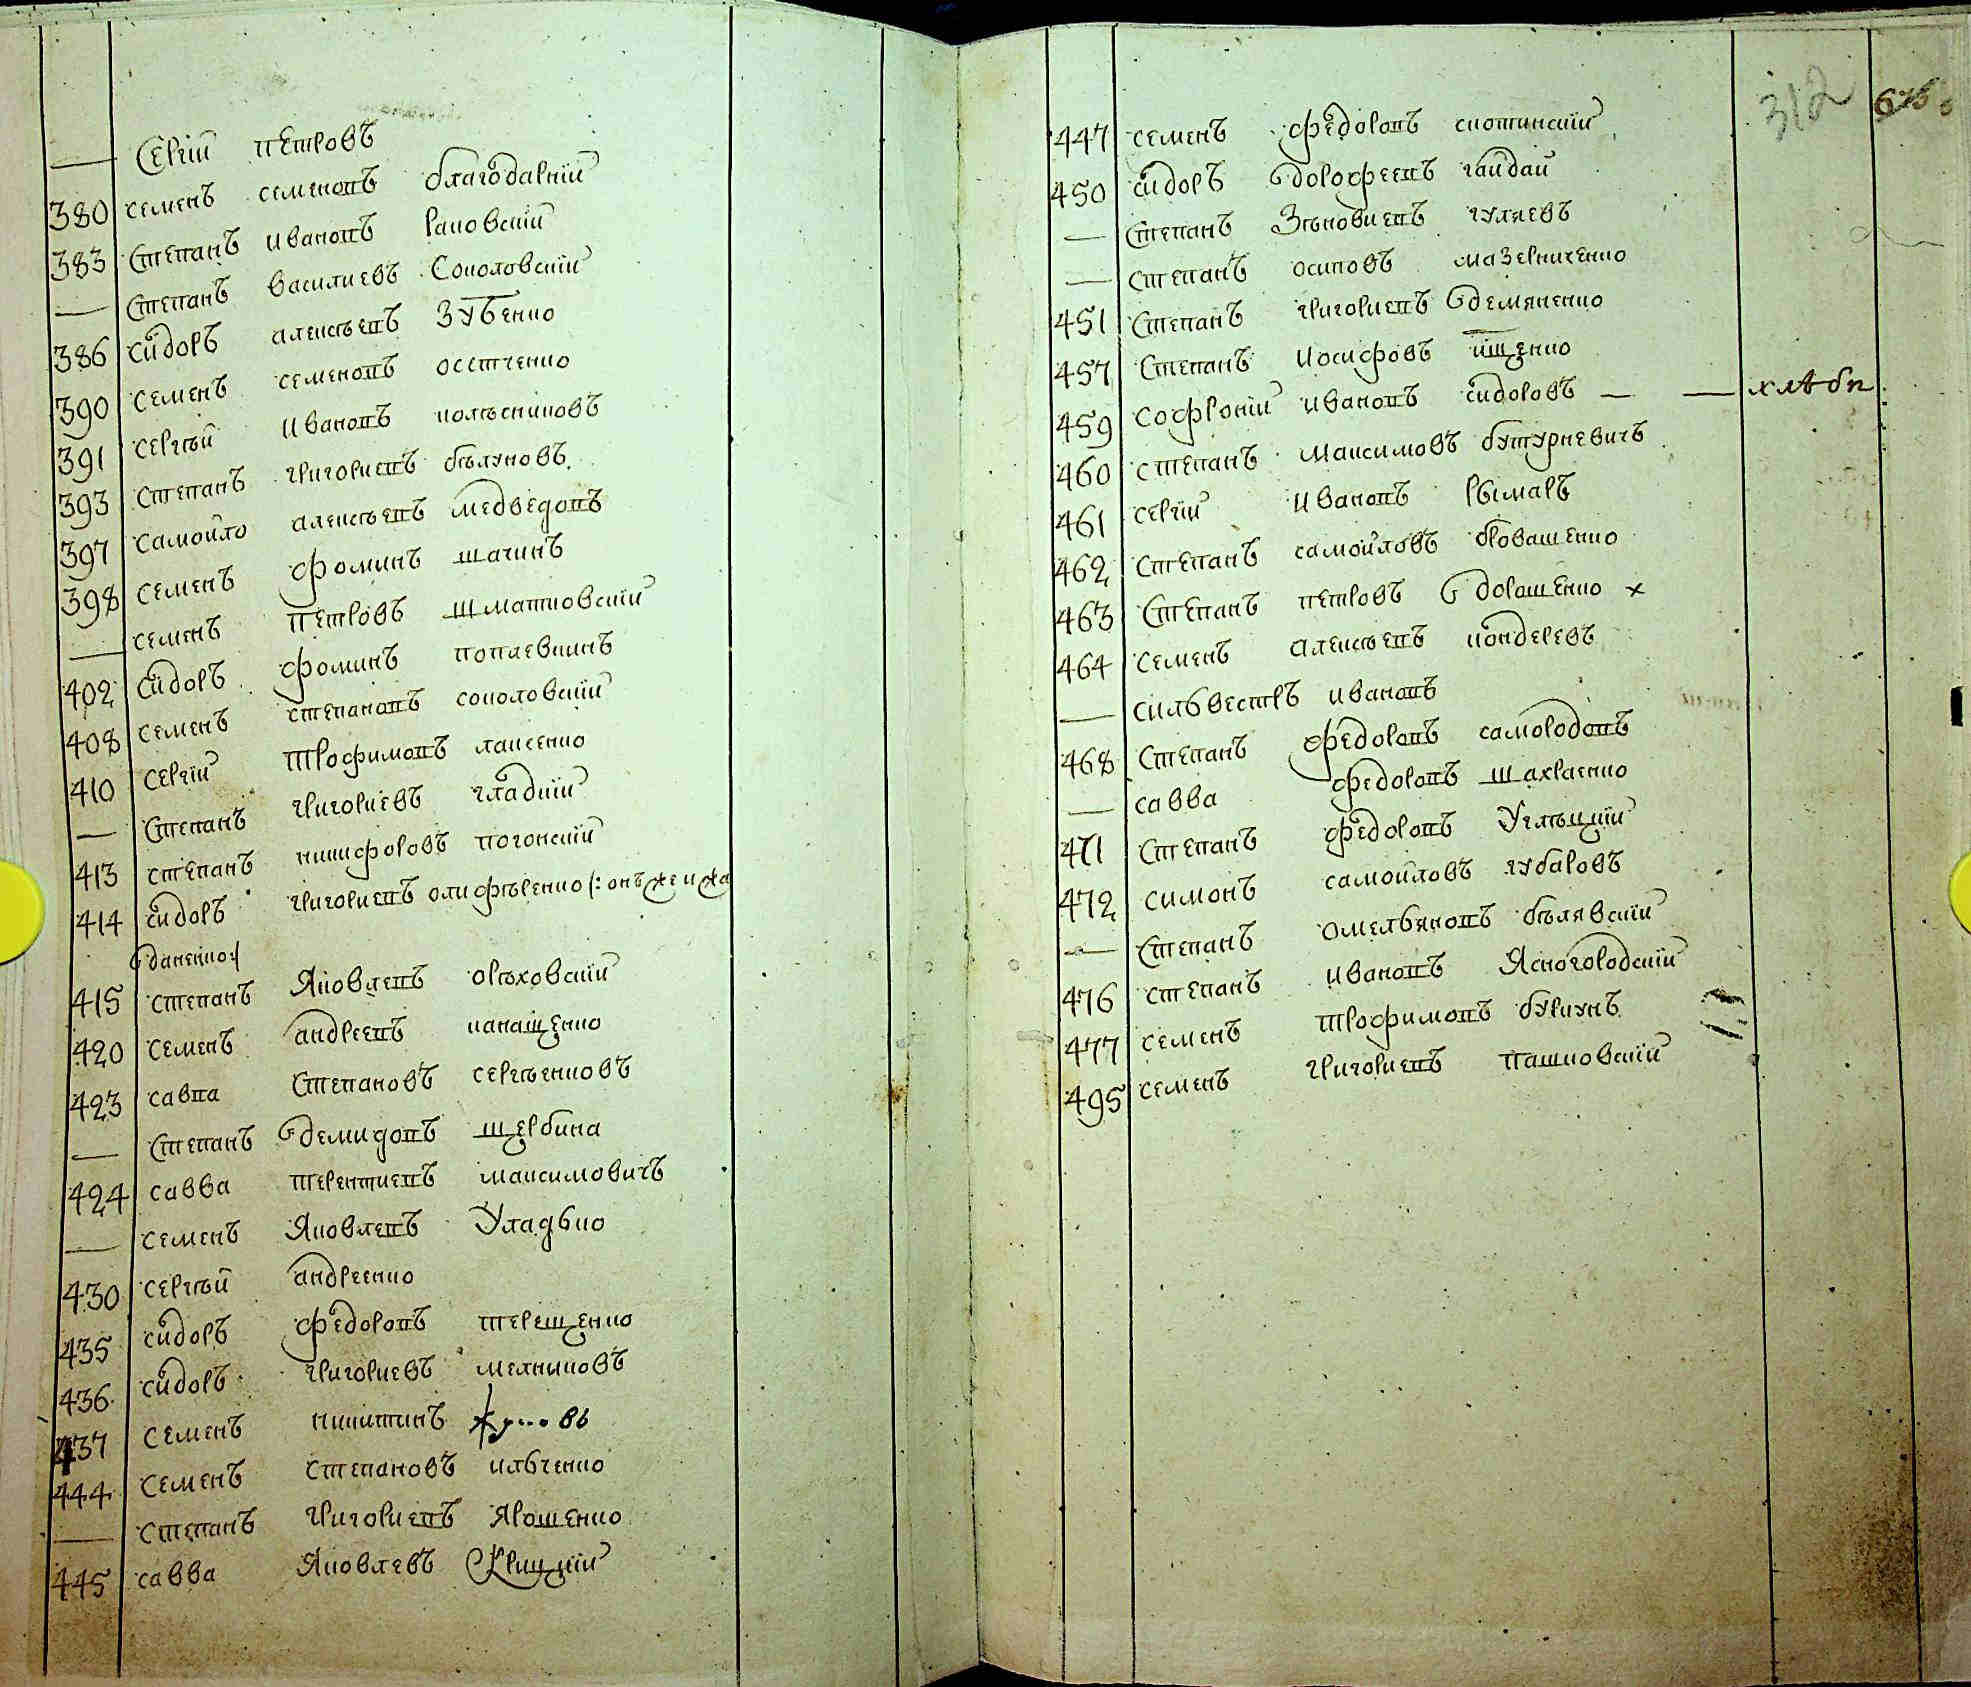 — Сергій Петровъ
380 Семенъ Семеновъ Благодарній
383 Степанъ Ивановъ Раковскій
— Степанъ Василиевъ Соколовскій
386 Сидоръ Алексѣевъ Зубенко
390 Семенъ Семеновъ Осетченко
391 Сергѣй Ивановъ Колѣсниковъ
393 Степанъ Григориевъ Бѣлуновъ
397 Самойло Алексѣевъ Медведовъ
398 Семенъ Фоминъ Шагинъ
— Семенъ Петровъ Шматковскій
402 Сидоръ Фоминъ
408 Семенъ Степановъ Соколовскій
410 Сергій Трофимовъ Лаксенко
— Степанъ Григориевъ Гладкій
413 Степанъ Никифоровъ Погонскій
414 Сидоръ Григориевъ Олифѣренко /: онъ же и жа
даненко :/
415 Степанъ Яковлевъ Орѣховскій
420 Семенъ Андреевъ Канащенко
423 Савва Степановъ Сергѣенковъ
— Степанъ Демидовъ Щербина
424 Савва Терентиевъ Максимовичъ
— Семенъ Яковлевъ Уладько
430 Сергѣй Андреенко
435 Сидоръ Федоровъ Терещенко
436 Сидоръ Григориевъ Мелниковъ
437 Семенъ Никитинъ
444 Семенъ Степановъ Ильченко
— Степанъ Григориевъ Ярошенко
445 Савва Яковлевъ Крицкій
312 675
447 Семенъ Федоровъ Скотинскій
450 Сидоръ Дорофеевъ Гайдай
— Степанъ Зѣновиевъ Гуляевъ
— Степанъ Осиповъ Мазерниченко
451 Степанъ Григориевъ Демяненко
457 Степанъ Иосифовъ Ищенко
459 Софроній Ивановъ Сидоровъ — — хлѣбп
460 Степанъ Максимовъ Бутурневичъ
461 Сергій Ивановъ Рымаръ
462 Степанъ Самойловъ Бровашенко
463 Степанъ Петровъ Дорошенко ×
464 Семенъ Алексѣевъ Кондеревъ
— Сильвестръ Ивановъ
468 Степанъ Федоровъ Самородовъ
— Савва Федоровъ Шахраенко
471 Степанъ Федоровъ Углѣцкій
472 Симонъ Самойловъ Губаровъ
— Степанъ Омельяновъ Бѣлявскій
476 Степанъ Ивановъ Ясногородскій
477 Семенъ Трофимовъ Буркунъ
495 Семенъ Григориевъ Пашковскій